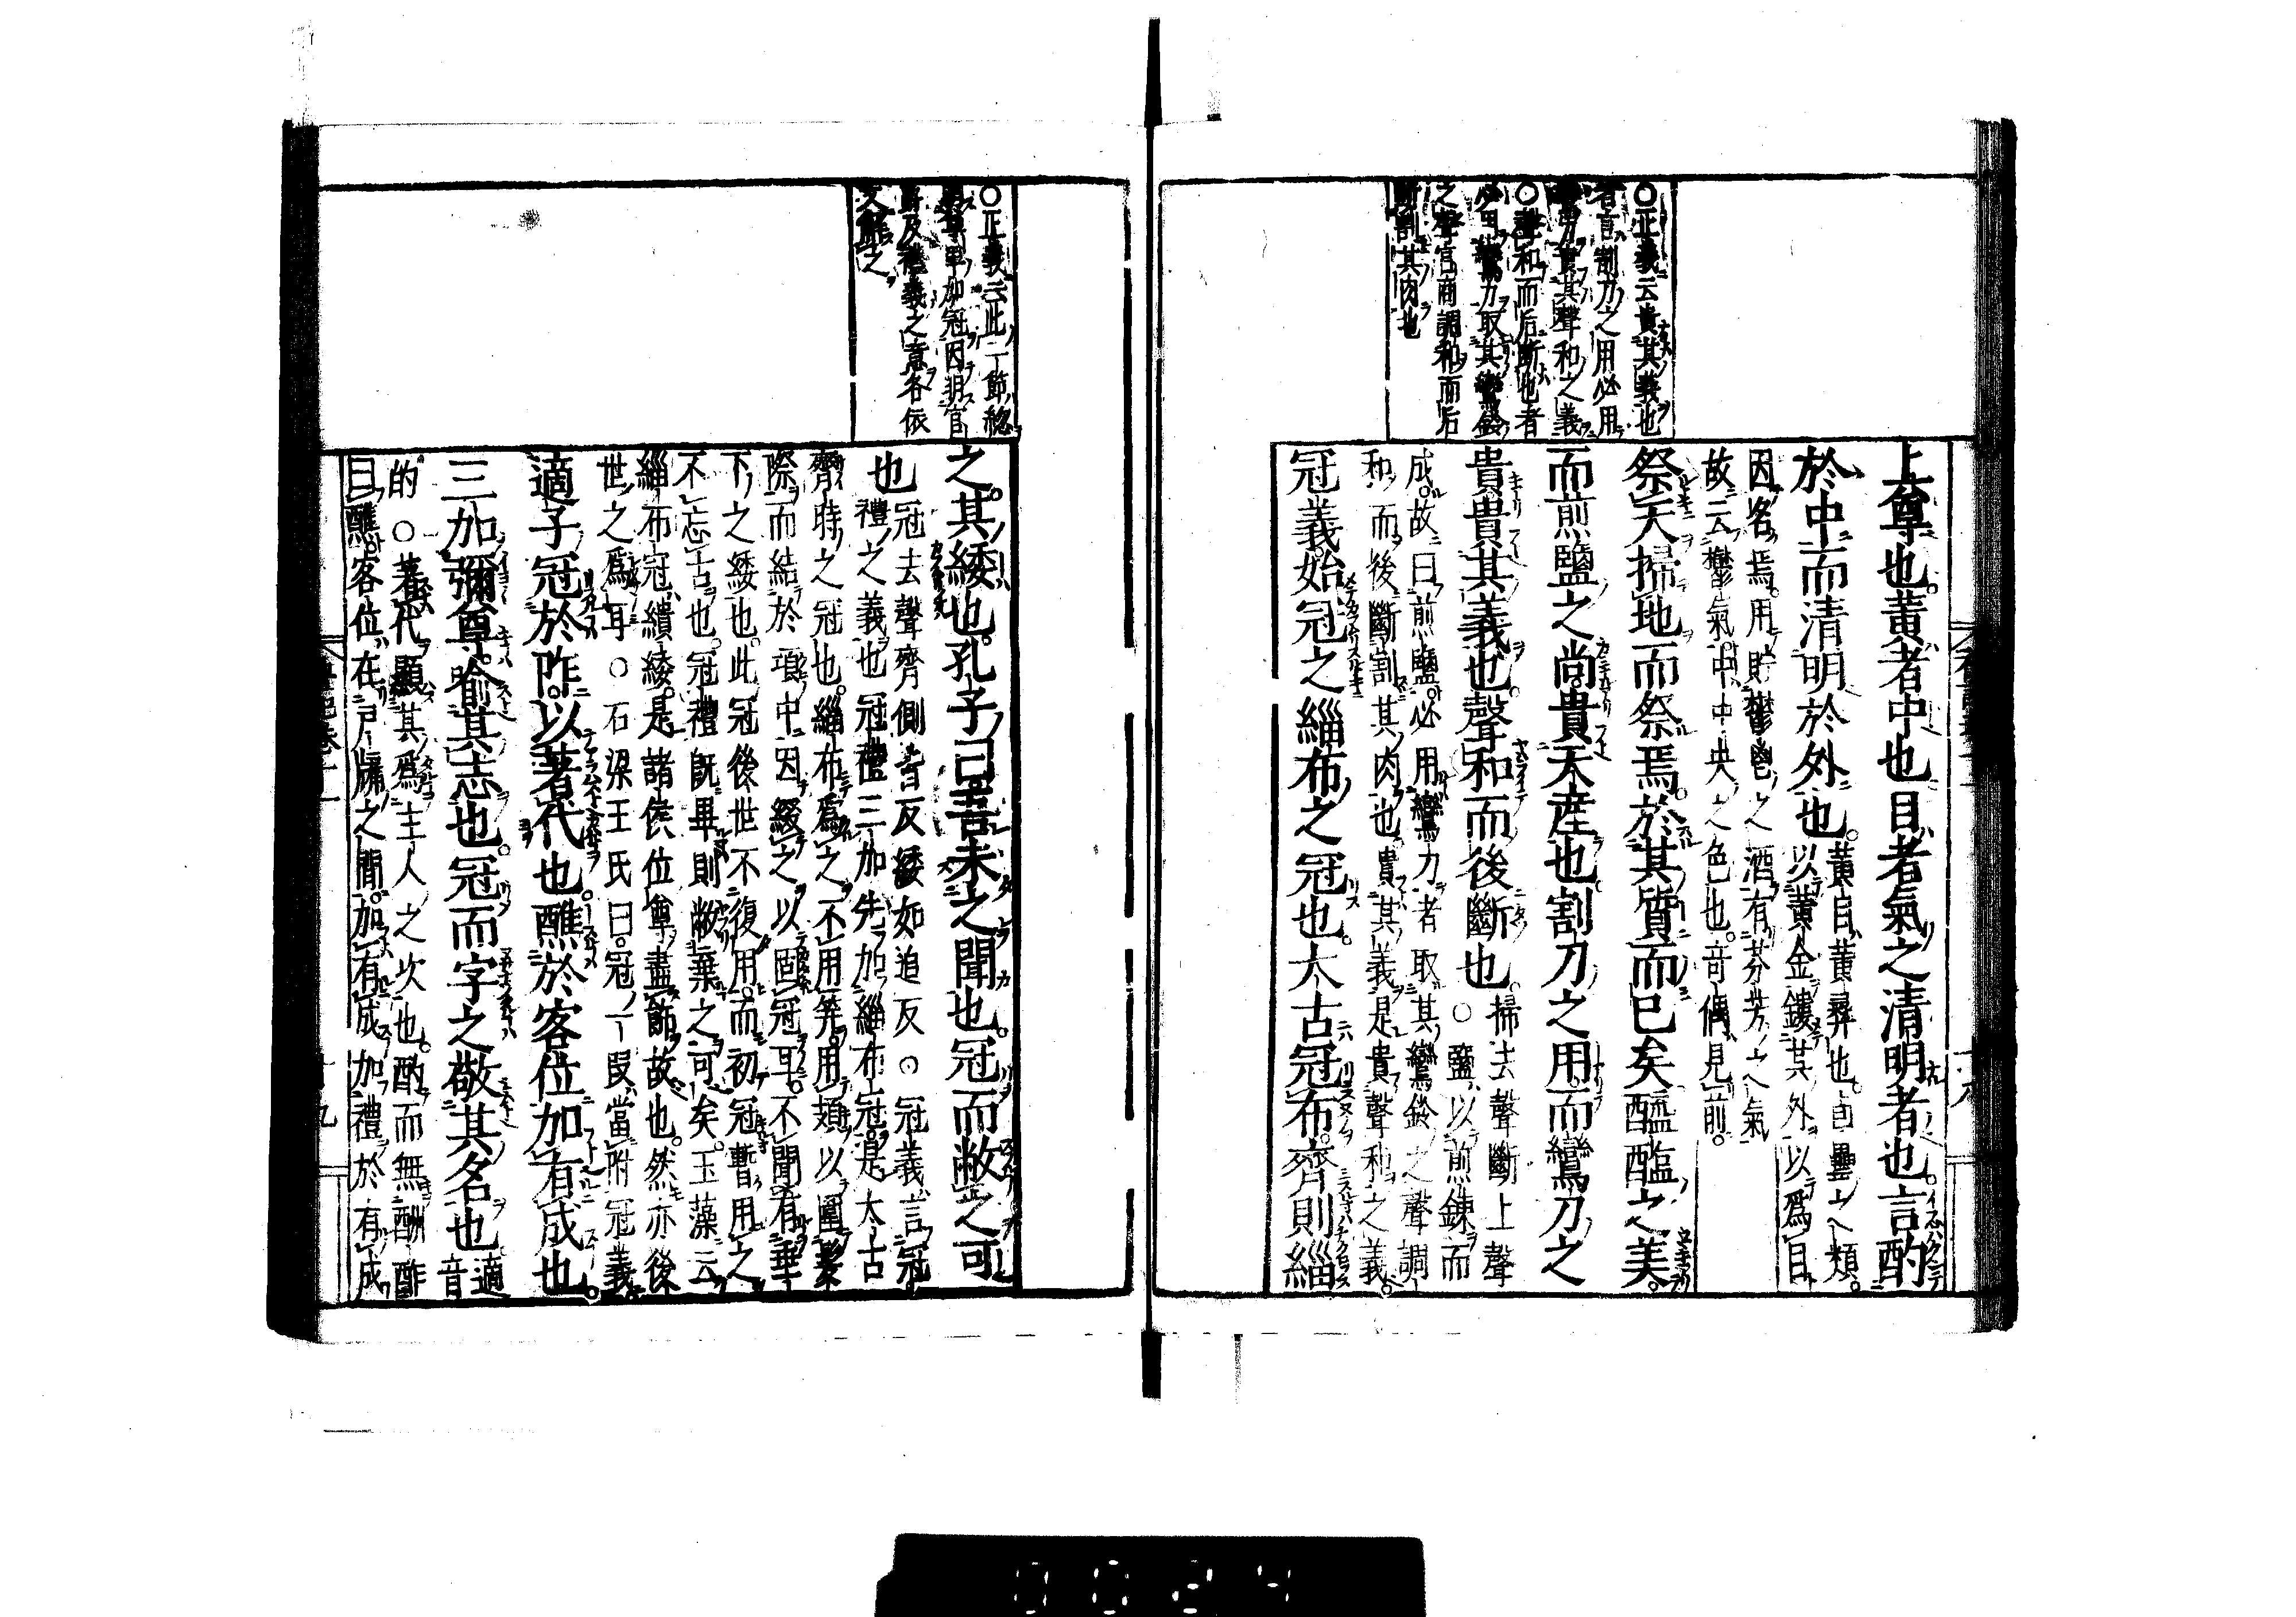 ○正義云貴其義也
者言割刀之用必用
鸞刀貴其聲和之義
○聲和而后斷也者
必用鸞刀取其鸞鈴
之聲宮商調和而后
斷割其肉也
上尊也。黃者中也。目者氣之清明者也。言酌
於中而清明於外也。
黃目黃彝也。卣罍之類。
以黃金鏤其外以爲目
因名焉。用貯鬱鬯之酒有芬芳之氣
故云鬱氣。中中央之色也。奇偶見前。
祭天掃地而祭焉。於其質而已矣醯醢之美。
而煎鹽之尚。貴天産也。割刀之用。而鸞刀之
貴。貴其義也。聲和而後斷也。
掃去聲斷上聲
○鹽以煎鍊而
成。故曰煎鹽。必用鸞刀者取其鸞鈴之聲調
和而後斷割其肉也貴其義是貴聲和之義。
冠義。始冠之緇布之冠也。太古冠布。齊則緇
○正義云此一節總
明尊卑加冠因明官
爵及禮義之意各依
文解之
之。其緌也。孔子曰吾未之聞也。冠而敝之可
也
冠去聲齊側皆反緌如追反○冠義言冠
禮之義也冠禮三加先加緇布冠。是太古
齊時之冠也。緇布爲之。不用筓。用頍以圍髮
際而結於項中因綴之以固冠耳。不聞有垂
下之緌也。此冠後世不復用。而初冠暫用之
不忘古也。冠禮既畢則敝棄之可矣。玉藻云
緇布冠繢緌。是諸侯位尊盡飾故也。然亦後
世之爲耳。○石梁王氏曰。冠一段當附冠義
適子冠於阼。以著代也。醮於客位。加有成也。
三加彌尊。喩其志也。冠而字之。敬其名也
適
音
的○著代顯其爲主人之次也。酌而無酬酢
曰醮。客位在戶牖之間。加有成加禮於有成